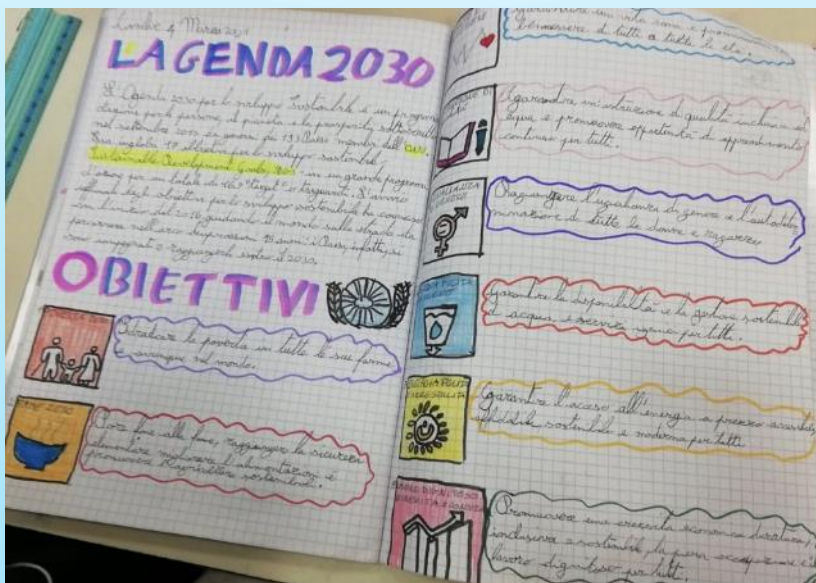 Marzo
L'AGENDA 2030
L'Agenda 2030 per lo sviluppo sostenibile è un programma
d'azione per le persone, il pianeta e la prosperità sottoscritto
nel settembre 2015 dai governi dei 193 Paesi membri dell'ONU.
Essa ingloba 17 obiettivi per lo sviluppo sostenibile,
Sustainable Development Goals, in un grande programma
d'azione per un totale di 169 "target" o traguardi. L'avvio
ufficiale degli obiettivi per lo sviluppo sostenibile ha coinciso
con l'inizio del 2016 guidando il mondo sulla strada da
percorrere nell'arco dei prossimi 15 anni: i Paesi, infatti, si
sono impegnati a raggiungerli entro il 2030.
OBIETTIVI
Sradicare la povertà in tutte le sue forme
e ovunque nel mondo.
Porre fine alla fame, raggiungere la sicurezza
alimentare, migliorare l'alimentazione e
promuovere l'agricoltura sostenibile.
garantire una vita sana e promuovere il
benessere di tutti a tutte le età.
garantire un'istruzione di qualità inclusiva ed
equa e promuovere opportunità di apprendimento
continuo per tutti.
UGUAGLIANZA
DI GENERE
Raggiungere l'uguaglianza di genere e l'autodeter
minazione di tutte le donne e ragazze
ACQUA PULITA
Garantire la disponibilità e la gestione sostenibile
di acqua e servizi igienici per tutti.
ENERGIA PULITA
E ACCESSIBILE
Garantire l'accesso all'energia a prezzo accessibile,
affidabile, sostenibile e moderna per tutti
LAVORO DIGNITOSO
E CRESCITA ECONOMICA
Promuovere una crescita economica duratura,
inclusiva e sostenibile, la piena occupazione e il
lavoro dignitoso per tutti.